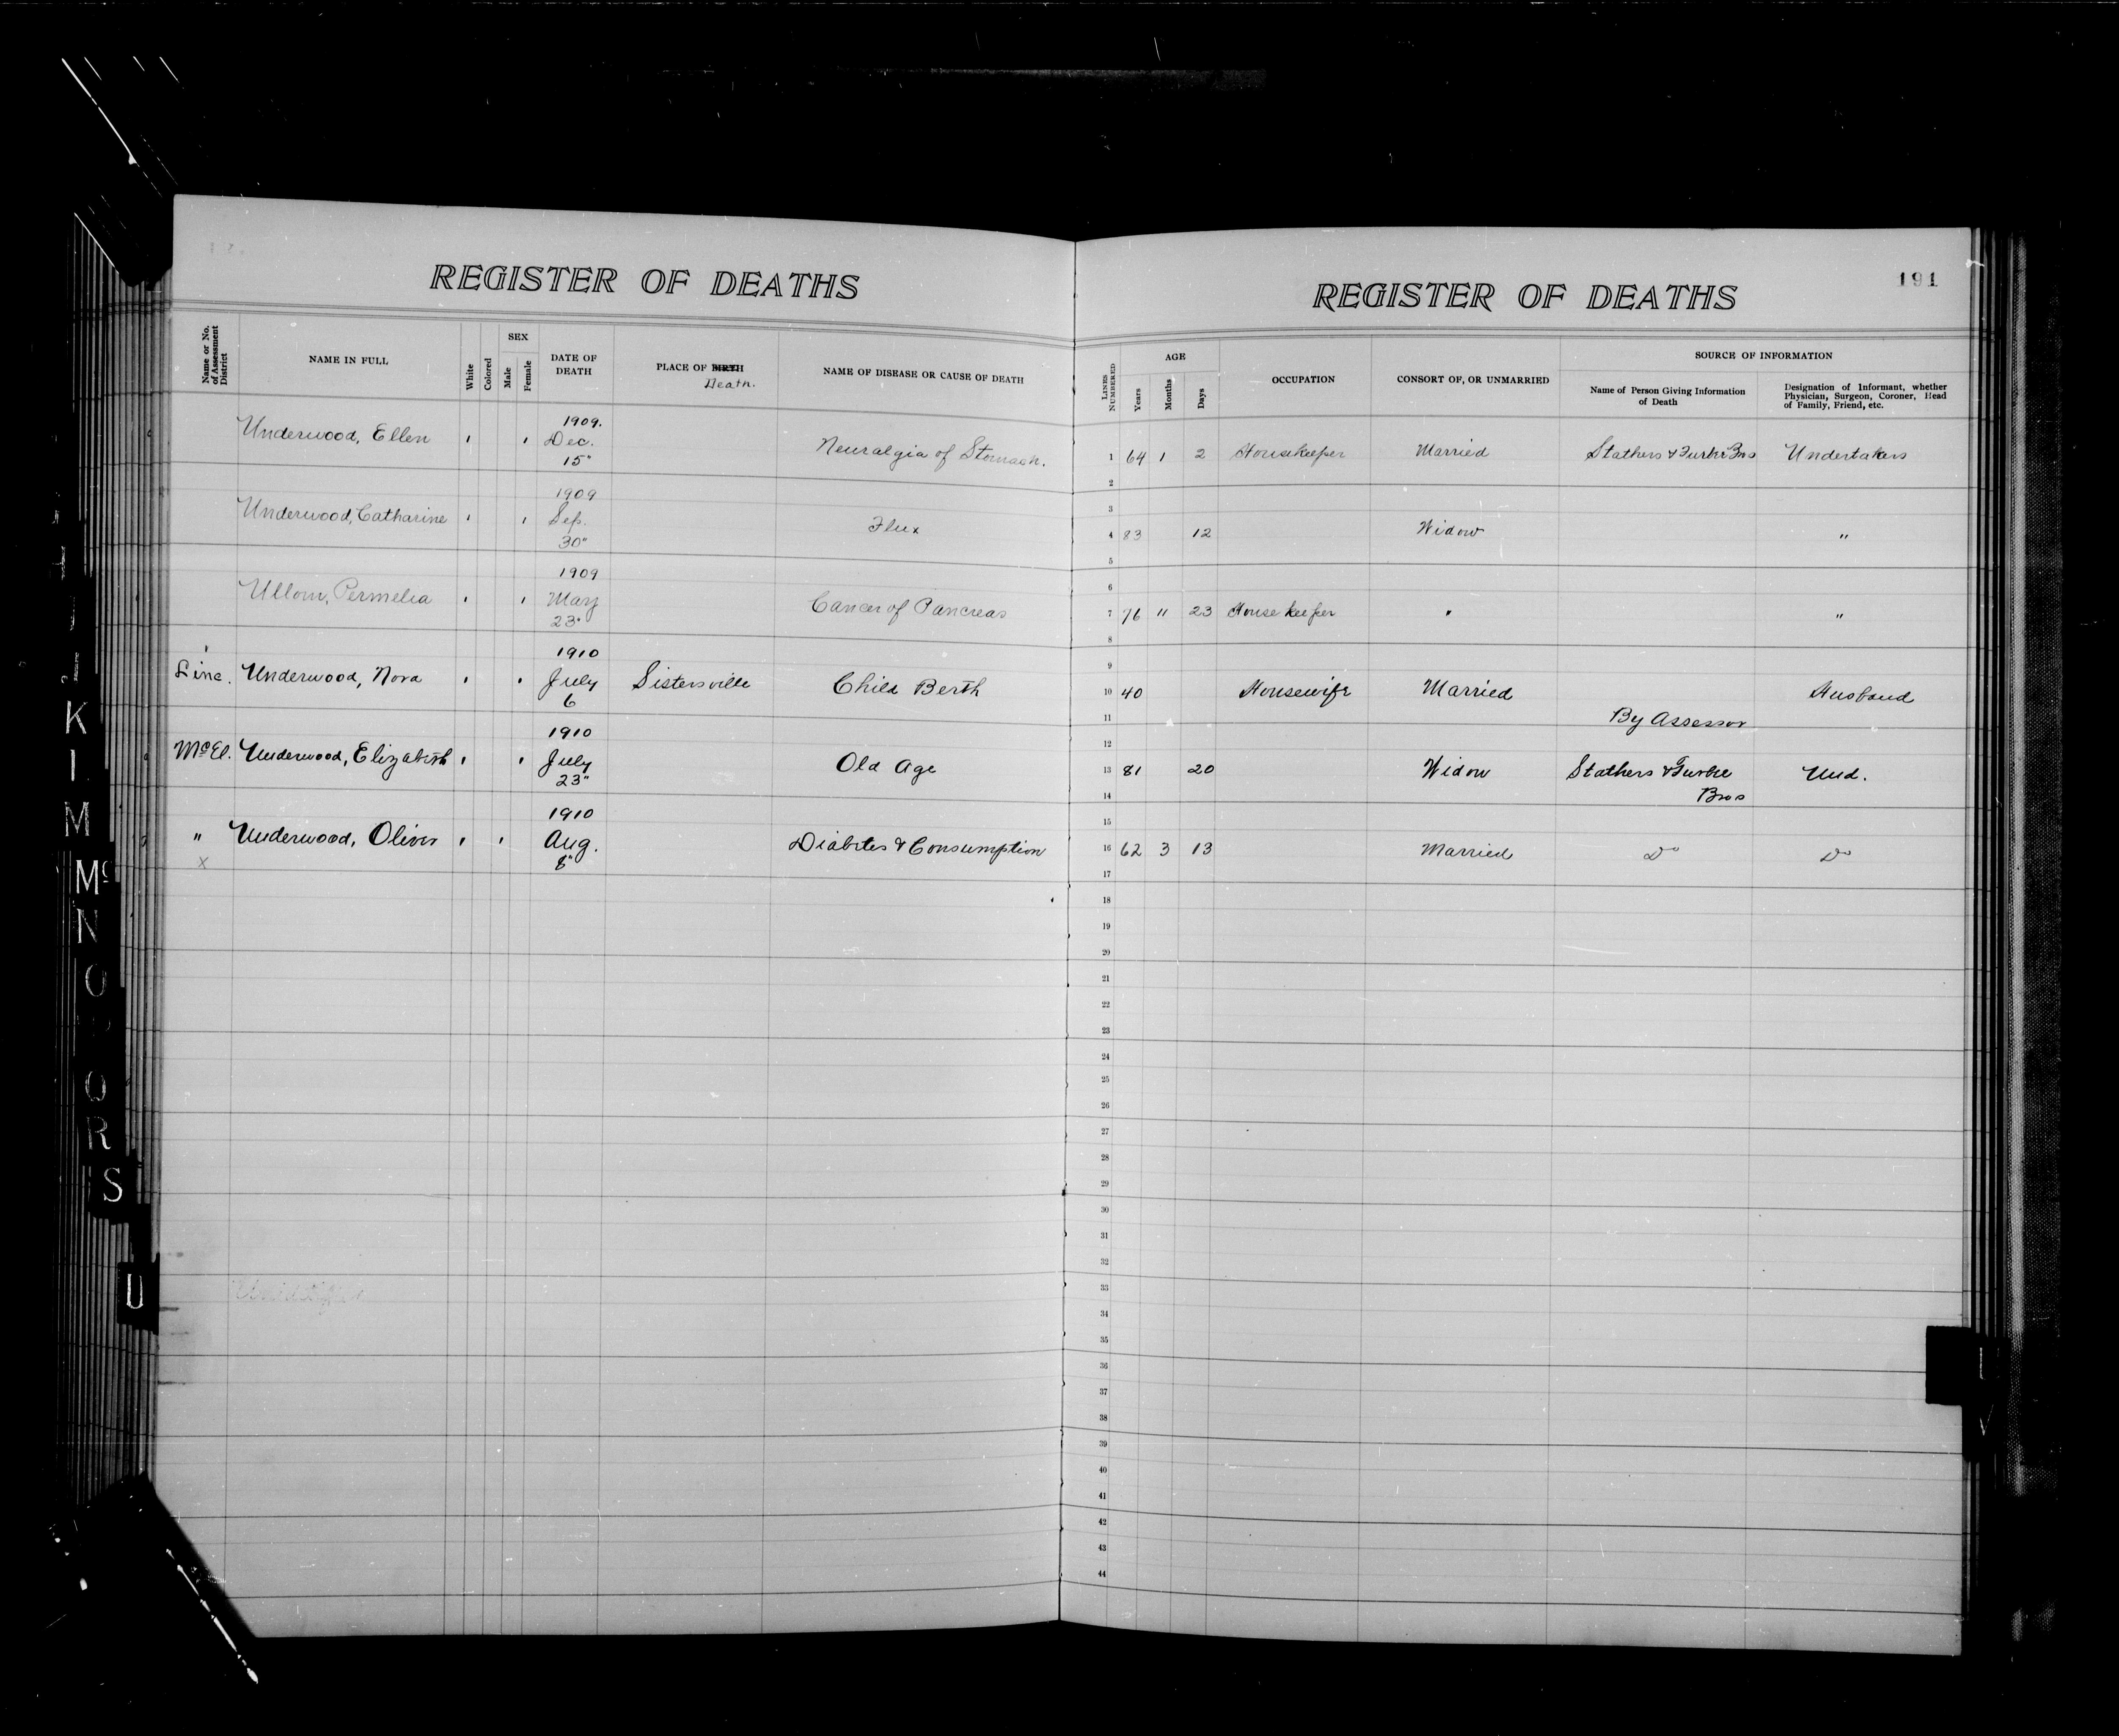 REGISTER OF DEATHS
REGISTER OF DEATHS
191
Name or No. of Assessment District
NAME IN FULL
White
Colored
SEX
Male
Female
DATE OF DEATH
PLACE OF BIRTH
Death.
NAME OF DISEASE OR CAUSE OF DEATH
LINES NUMBERED
AGE
Years
Months
Days
OCCUPATION
CONSORT OF, OR UNMARRIED
SOURCE OF INFORMATION
Name of Person Giving Information of Death
Designation of Informant, whether Physician, Surgeon, Coroner, Head of Family, Friend, etc.
Underwood, Ellen ' ' 1909. Dec. 15" Neuralgia of Stomach. 1 64 1 2 Housekeeper Married Stathers & Bros Undertakers
2
3
Underwood, Catharine ' ' 1909 Sep. 30" Flux 4 83 12 Widow "
5
6
Ullom, Permelia ' ' 1909 May 23" Cancer of Pancreas 7 76 11 23 House keeper " "
8
9
Linc. Underwood, Nora ' ' 1910 July 6 Sistersville Child Berth 10 40 Housewife Married Husband
11 By Assessor
12
McEl. Underwood, Elizabeth ' ' 1910 July 23" Old Age 13 81 20 Widow Stathers & Und.
14 Bros
15
" Underwood, Oliver ' ' 1910 Aug. 8" Diabites & Consumption 16 62 3 13 Married Do Do
X
17
18
19
20
21
22
23
24
25
26
27
28
29
30
31
32
33
34
35
36
37
38
39
40
41
42
43
44
K
I
M
Mc
N
O
Q
R
S
U